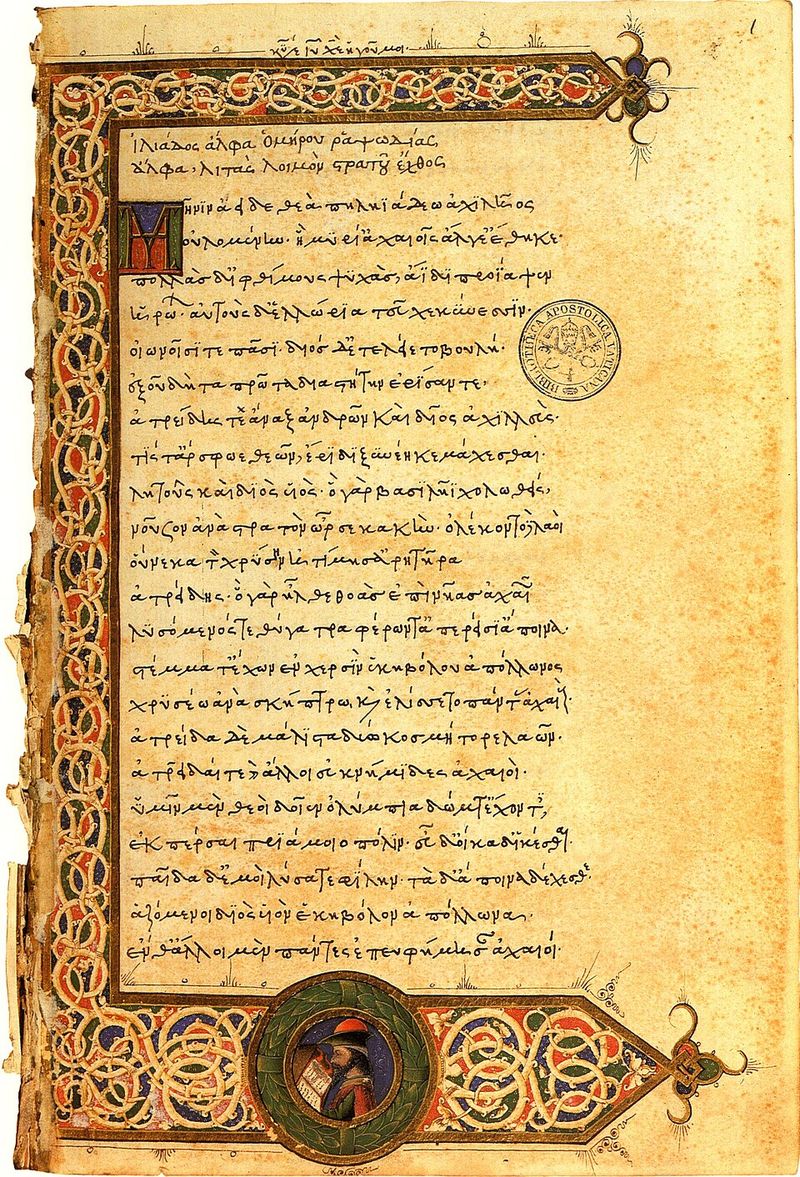 1
κε ιυ χε ἡγοῦ μοι·
ἰλιάδος ἄλφα ὁμήρου ῥαψωδίας
ἄλφα, λιτὰς λοιμὸν στρατοῦ ἔχθος
μῆνιν ἄειδε θεὰ πηληϊάδεω ἀχιλῆος
οὐλομένην· ἣ μυρί' ἀχαιοῖς ἄλγε' ἔθηκε·
πολλὰς δ' ἰφθίμους ψυχὰς ἄϊδι προΐαψεν
ἡρώων· αὐτοὺς δὲ ἑλλώρια τεῦχε κύνεσσιν·
οἰωνοῖσί τε πᾶσι· διός δὲ τελείετο βουλή·
ἐξ οὗ δὴ τὰ πρῶτα διαστήτην ἐρίσαντε,
ἀτρείδης τε ἄναξ ἀνδρῶν καὶ δῖος ἀχιλλεύς·
τίς τ' ἄρ σφωε θεῶν, ἔριδι ξυνέηκε μάχεσθαι·
λητοῦς καὶ διὸς υἱός· ὁ γὰρ βασιλῆϊ χολωθείς,
νοῦσον ἀνὰ στρατὸν ὦρσε κακὴν· ὀλέκοντο δὲ λαοὶ
οὕνεκα τὸν χρύσην ἠτίμησ' ἀρητῆρα
ἀτρείδης· ὁ γὰρ ἦλθε θοὰς ἐπὶ νῆας ἀχαιῶν
λυσόμενός τε θύγατρα φέρων τ' ἀπερείσι' ἄποινα·
στέμμα τ' ἔχων ἐν χερσὶν ἑκηβόλου ἀπόλλωνος
χρυσέω ἀνὰ σκήπτρω, καὶ ἐλίσσετο πάντας ἀχαιούς·
ἀτρείδα δὲ μάλιστα δύω κοσμήτορε λαῶν·
ἀτρεῖδαί τε καὶ ἄλλοι ἐϋκνήμιδες ἀχαιοὶ·
ὑμῖν μὲν θεοὶ δοῖεν ὀλύμπια δώματ' ἔχοντες,
ἐκπέρσαι πριάμοιο πόλιν· εὖ δ' οἴκαδ' ἱκέσθαι·
παῖδα δέ μοι λύσατε φίλην· τὰ δ' ἄποινα δέχεσθε·
ἁζόμενοι διὸς υἱὸν ἑκηβόλον ἀπόλλωνα·
ἔνθ' ἄλλοι μὲν πάντες ἐπευφήμησαν ἀχαιοί·
BIBLIOTHECA APOSTOLICA VATICANA